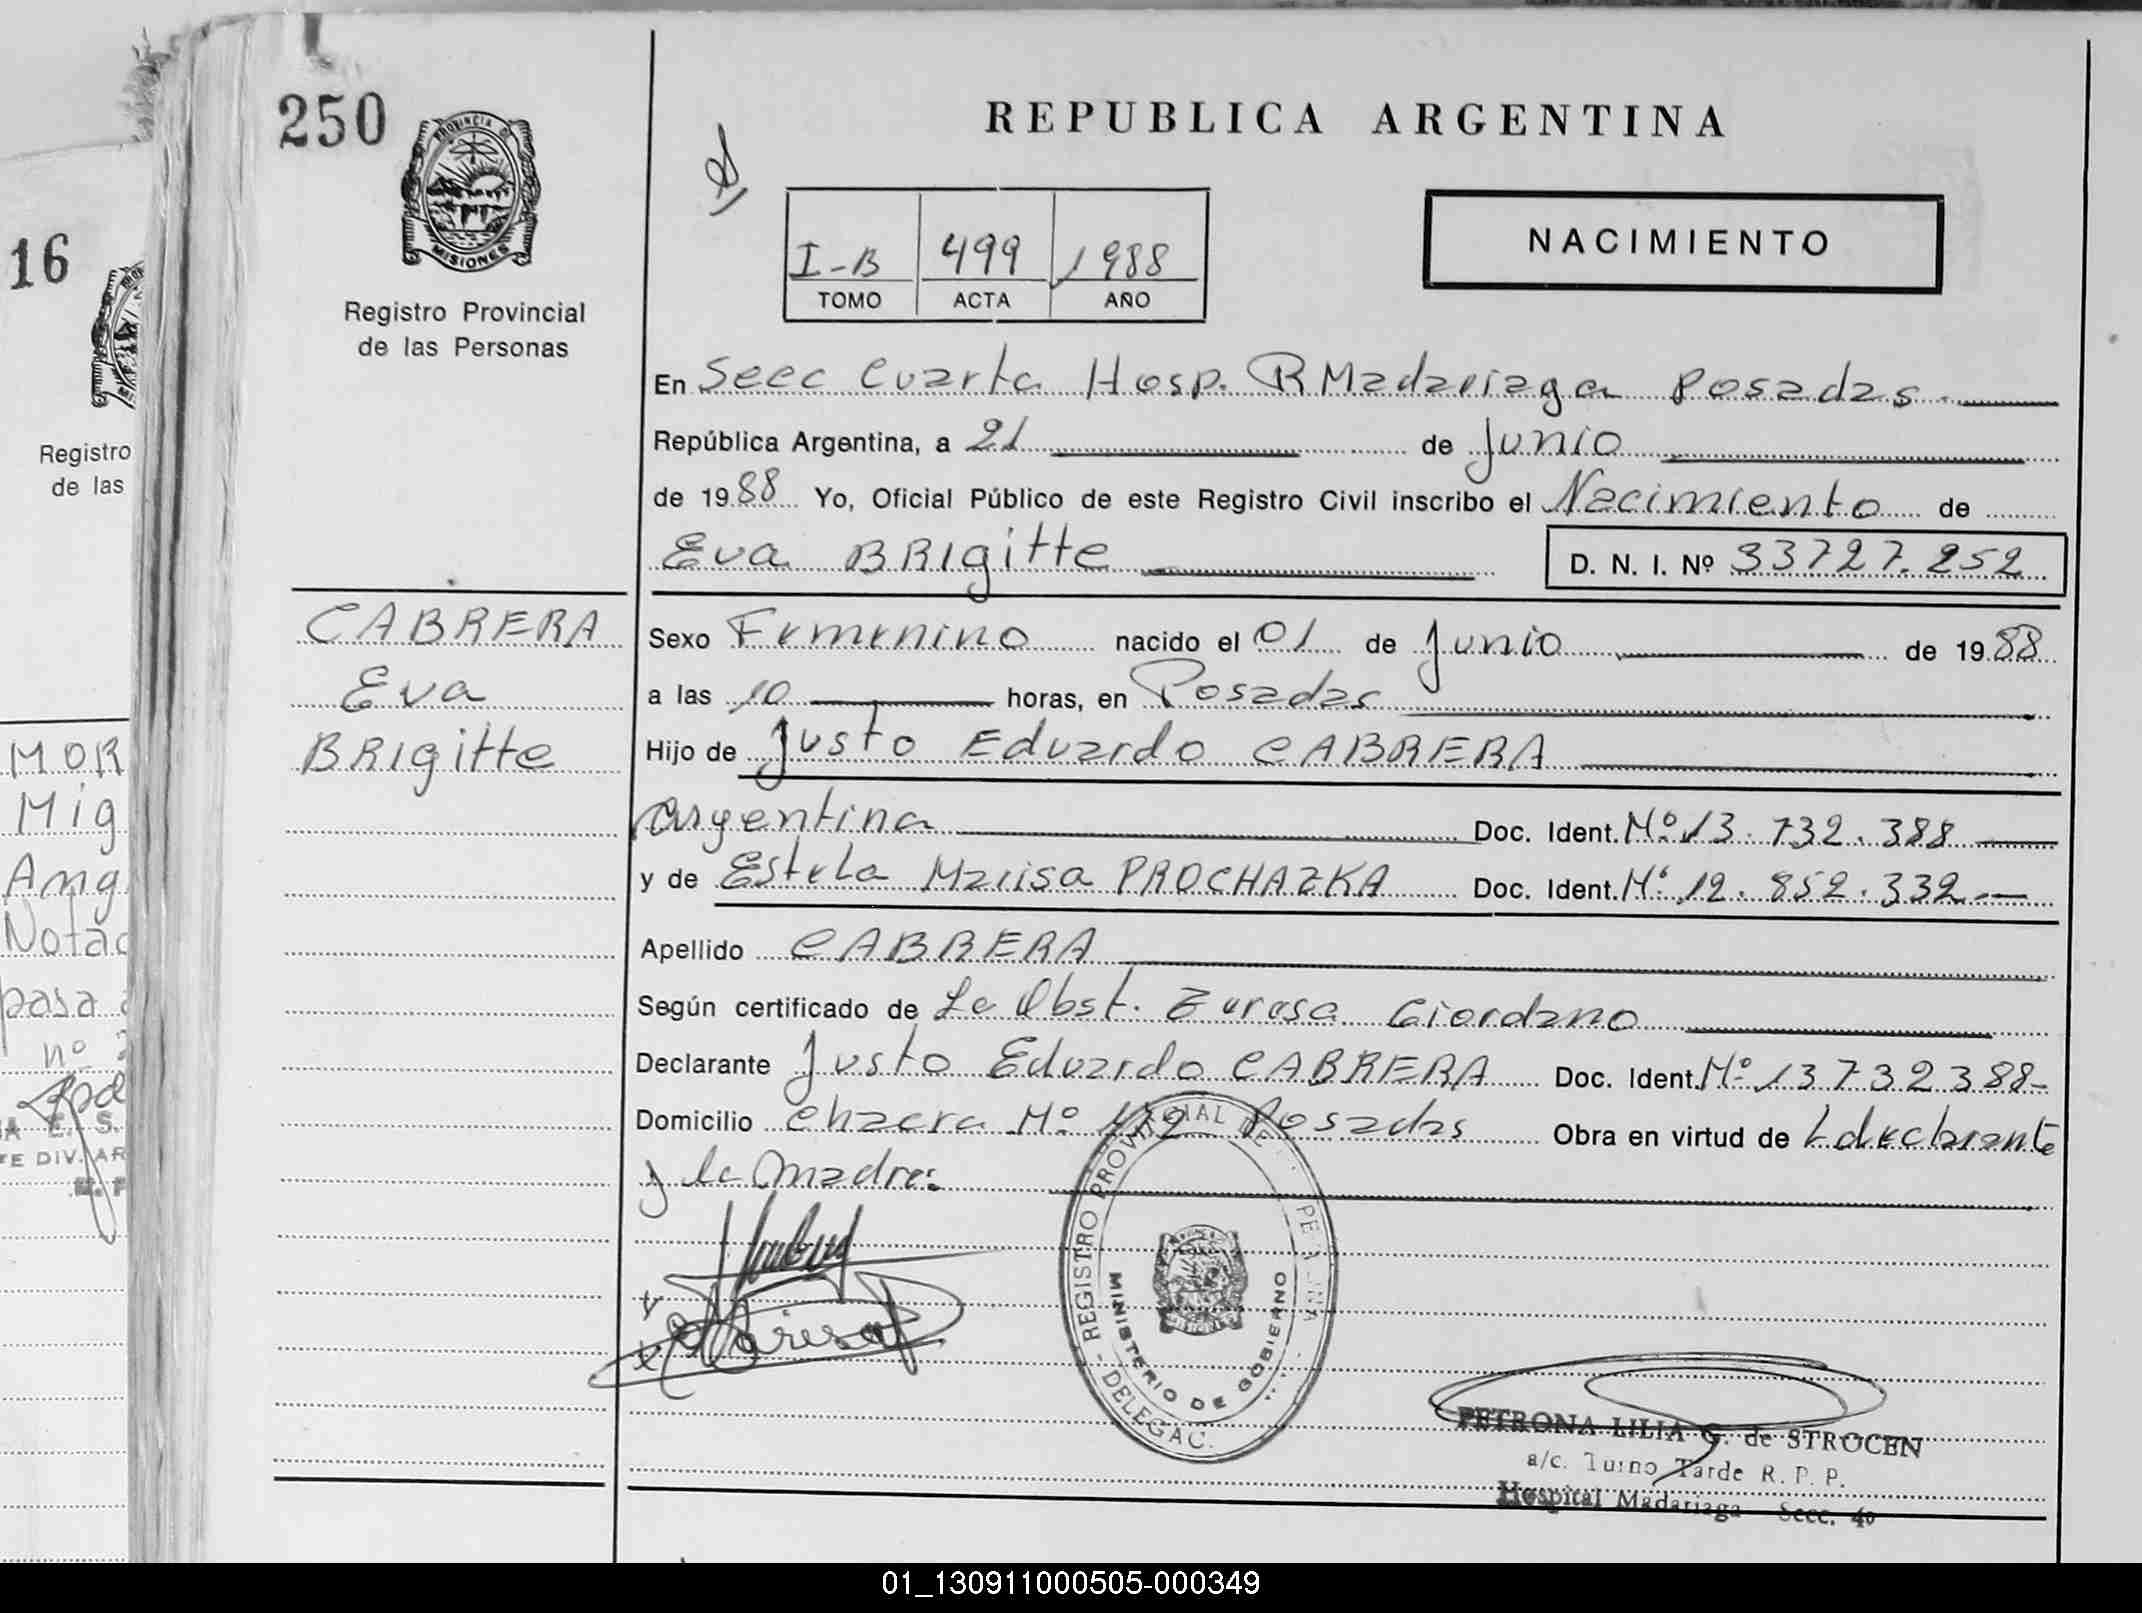 250
PROVINCIA DE
MISIONES
Registro Provincial
de las Personas
REPUBLICA ARGENTINA
I-B 499 1988
TOMO ACTA AÑO
NACIMIENTO
En Secc Cuarta Hosp. R Madariaga Posadas.
República Argentina, a 21 de Junio
de 1988 Yo, Oficial Público de este Registro Civil inscribo el Nacimiento de
Eva BRigitte D. N. I. Nº 33727.252
CABRERA
Eva
BRigitte
Sexo Femenino nacido el 01 de Junio de 1988
a las 10 horas, en Posadas
Hijo de Justo Eduardo CABRERA
Argentina Doc. Ident. Nº 13.732.388
y de Estela Marisa PROCHAZKA Doc. Ident. Nº 12.852.332
Apellido CABRERA
Según certificado de La Obst. Giordano
Declarante Justo Eduardo CABRERA Doc. Ident. Nº 13732388
Domicilio Chacra Nº Posadas Obra en virtud de declarante
y la madre:
REGISTRO PROVINCIAL DE
DELEGAC.
MINISTERIO DE GOBIERNO
MISIONES
Marisa
PETRONA LILIA G. de STROCEN
a/c. Turno Tarde R. P. P.
Hospital Madariaga Secc. 4º
16
Registro
de las
MOR
Mig
Ang
Nota
pasa
nº
E. S.
DIV. AR
01_130911000505-000349